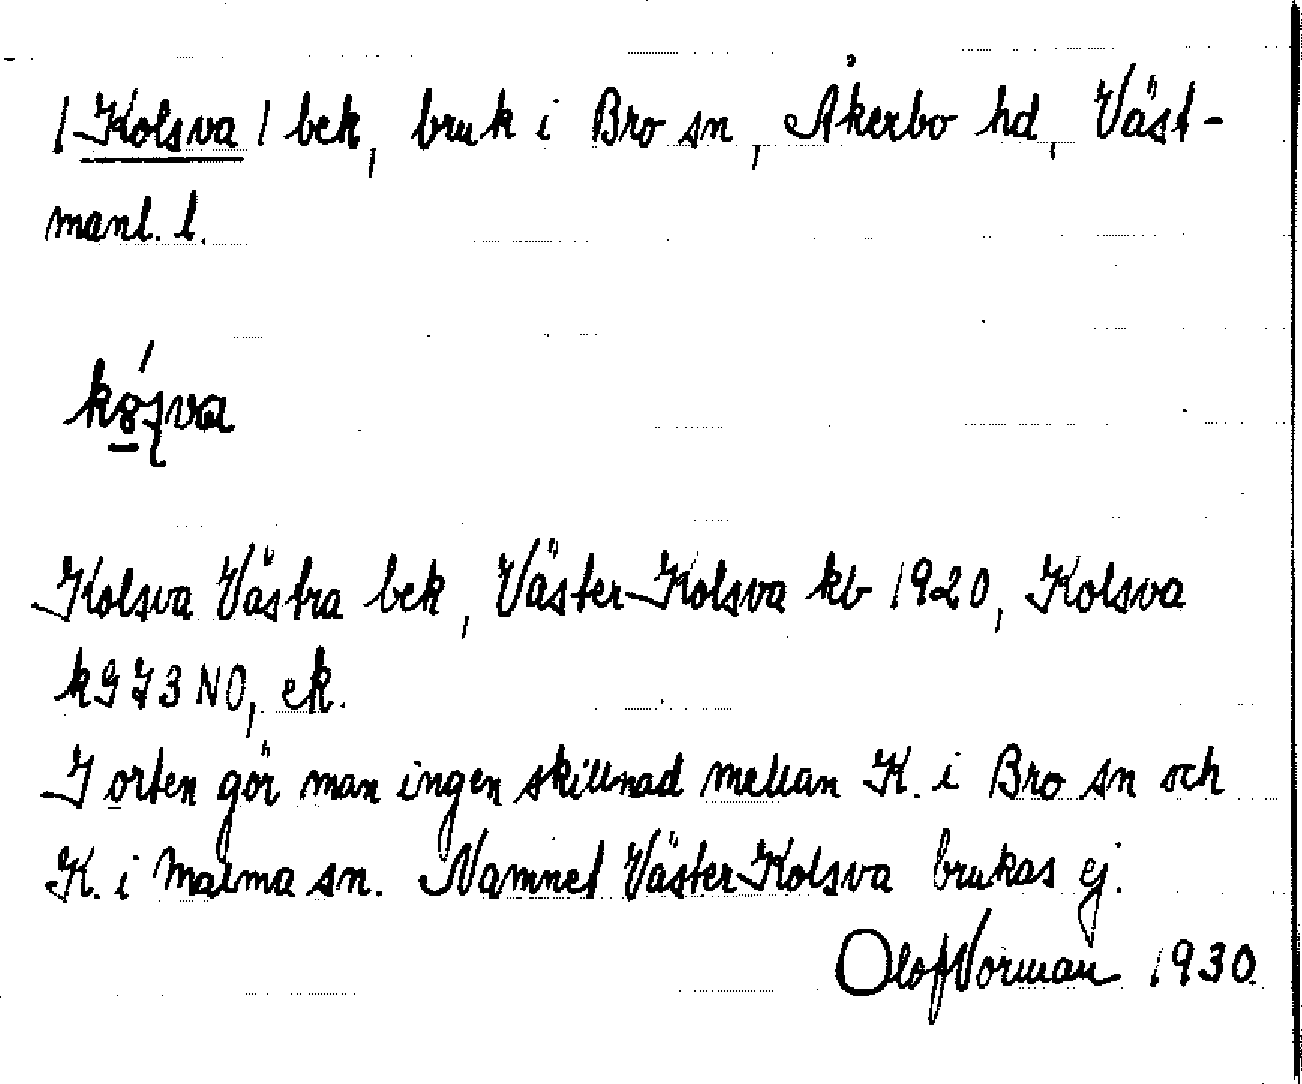 /Kolsva/ bek, bruk i Bro sn, Åkerbo hd, Väst-
manl. l.
Kolsva Västra bek, Väster-Kolsva kb 1920, Kolsva
kg 73 NO, ek.
I orten gör man ingen skillnad mellan K. i Bro sn och
K. i Malma sn. Namnet Väster-Kolsva brukas ej.
Olof Norman 1930